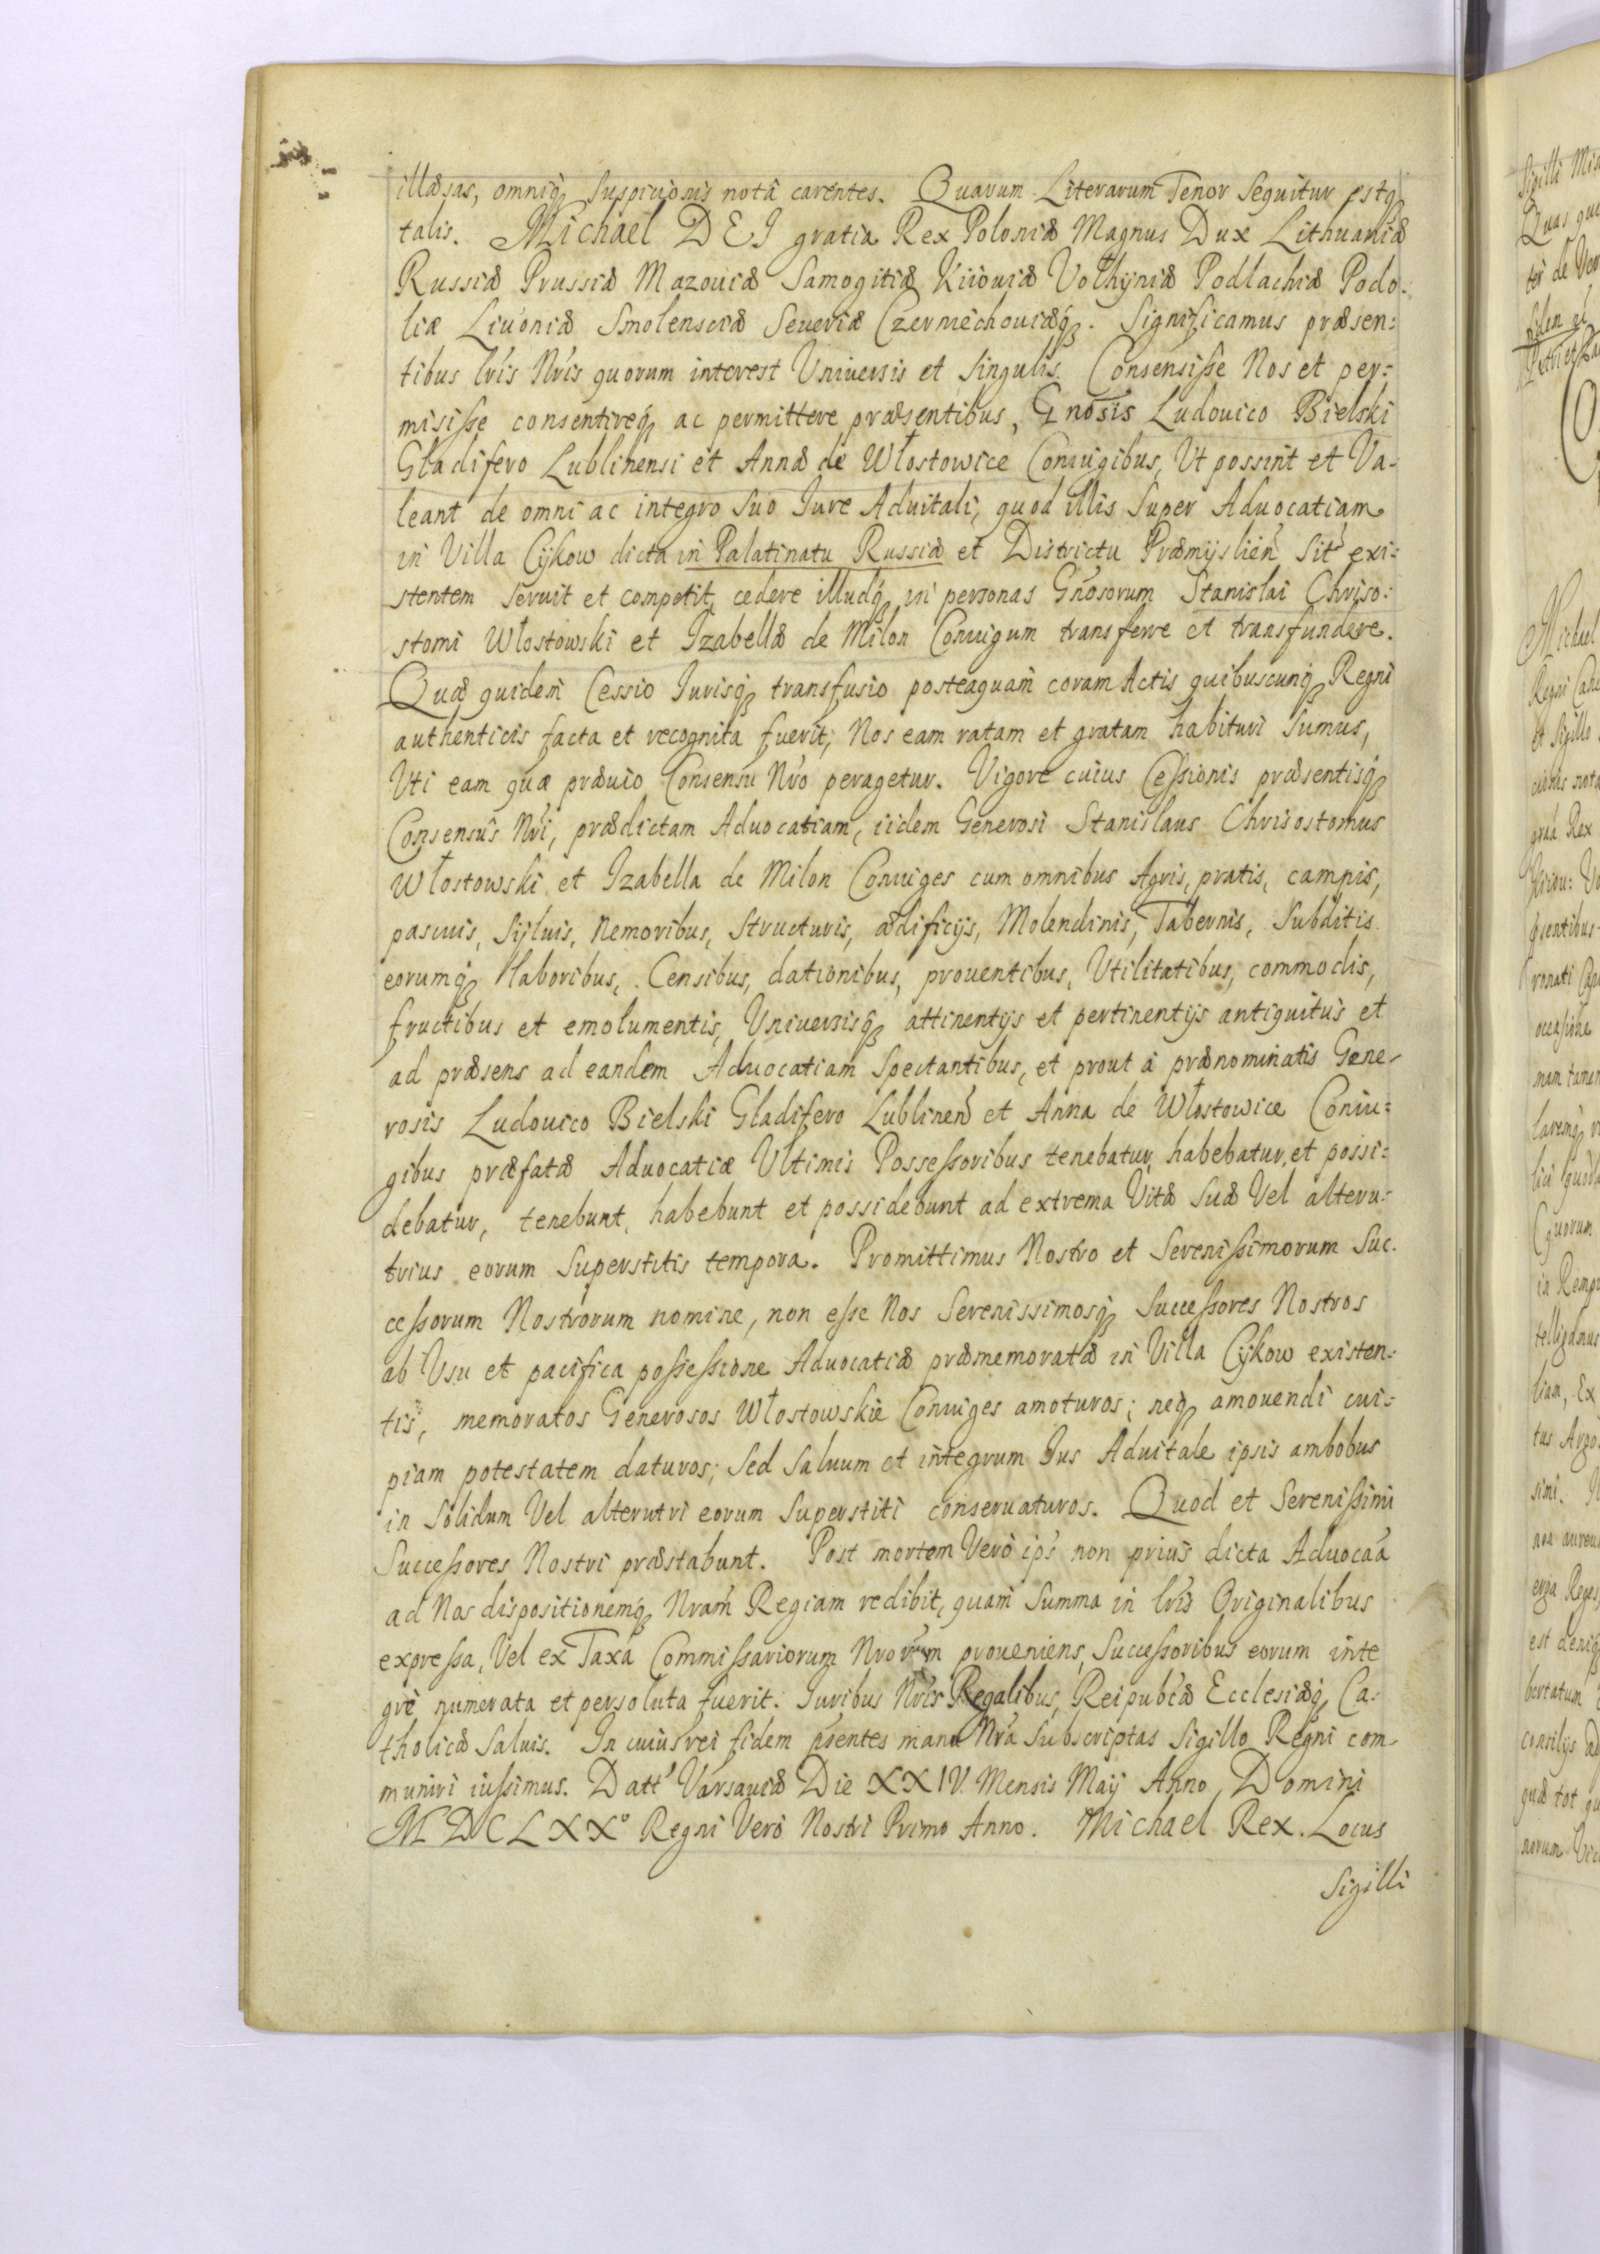 illæsas, omniq₃ Suspicionis notâ carentes. Quarum Literarum Tenor Sequitur estq₃
talis. Michael DEI gratia Rex Poloniæ Magnus Dux Lithuaniæ
Russiæ Prussiæ Mazouiæ Samogitiæ Kiiouiæ Volhÿniæ Podlachiæ Podo-
liæ Liuoniæ Smolensciæ Seueriæ Czerniechouiæq₃. Significamus præsen:
tibus lris Nris quorum interest Vniuersis et Singulis. Consensiſse Nos et per:
misiſse consentireq₃ ac permittere præsentibus, Gnosis Ludouico Bielski
Gladifero Lublinensi et Annæ de Włostowice Coniugibus, Vt possint et Va-
leant de omni ac integro Suo Iure Aduitali, quod illis Super Aduocatiam
in Villa Cÿkow dicta in Palatinatu Russiæ et Districtu Præmÿslien Sit exi:
stentem Seruit et competit, cedere illudq₃ in personas Gnosorum Stanislai Chriso:
stomi Włostowski et Izabellæ de Milon Coniugum transferre et transfundere.
Quæ quidem Cessio Iurisq₃ transfusio posteaquam coram Actis quibuscunq₃ Regni
authenticis facta et recognita fuerit, Nos eam ratam et gratam habituri Sumus,
Vti eam quæ præuio Consensu Nro peragetur. Vigore cuius Ceſsionis præsentisq₃
Consensûs Nri, prædictam Aduocatiam, iidem Generosi Stanislaus Chrisostomus
Włostowski et Izabella de Milon Coniuges cum omnibus Agris, pratis, campis,
pascuis, Sÿluis, Nemoribus, Structuris, ædificijs, Molendinis, Tabernis, Subditis
eorumq₃ Laboribus, Censibus, dationibus, prouentibus, Vtilitatibus, commodis,
fructibus et emolumentis, Vniuersisq₃ attinentijs et pertinentijs antiquitus et
ad præsens ad eandem Aduocatiam Spectantibus, et prout à prænominatis Gene-
rosis Ludouico Bielski Gladifero Lublinen et Anna de Włostowice Coniu:
gibus præfatæ Aduocatiæ Vltimis Posseſsoribus tenebatur, habebatur, et possi:
debatur, tenebunt, habebunt et possidebunt ad extrema Vitæ Suæ Vel alteru:
trius eorum Superstitis tempora. Promittimus Nostro et Sereniſsimorum Suc-
ceſsorum Nostrorum nomine, non eſse Nos Serenissimosq₃ Succeſsores Nostros
ab Vsu et pacifica poſseſsione Aduocatiæ præmemoratæ in Villa Cÿkow existen-
tis, memoratos Generosos Włostowskie Coniuges amoturos; neq₃ amouendi cui-
piam potestatem daturos; Sed Saluum et integrum Ius Aduitale ipsis ambobus
in Solidum Vel alterutri eorum Superstiti conseruaturos. Quod et Sereniſsimi
Succeſsores Nostri præstabunt. Post mortem Verò ips non prius dicta Aduocaa
ad Nos dispositionemq₃ Nram Regiam redibit, quam Summa in lris Originalibus
expreſsa, Vel ex Taxa Commiſsariorum Nrorum proueniens, Succeſsoribus eorum inte
grè numerata et persoluta fuerit. Iuribus Nris Regalibus, Reipubcæ Ecclesiæq₃ Ca-
tholicæ Saluis. In cuius rei fidem psentes manu Nra Subscriptas Sigillo Regni com-
muniri iuſsimus. Datt Varsauiæ Die XXIV. Mensis Maÿ Anno Domini
MDCLXX° Regni Verò Nostri Primo Anno. Michael Rex. Locus
Sigilli